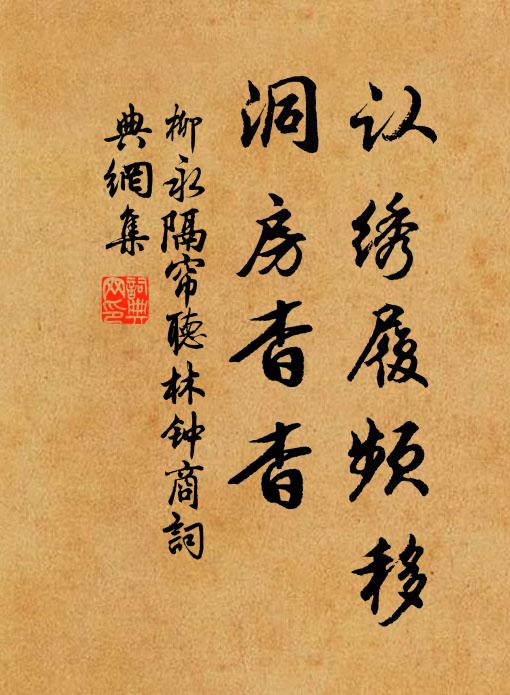 认绣履频移
洞房杳杳
柳永隔帘聽林钟商詞
典網集
詞典网印